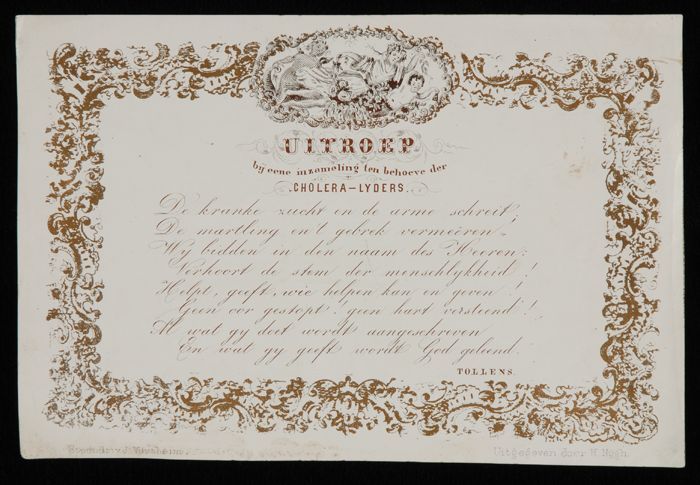 UITROEP
bij eene inzameling ten behoeve der
CHOLERA-LYDERS.
De kranke zucht en de arme schreit;
De martling en 't gebrek vermeêren.
Wij bidden in den naam des Heeren:
Verhoort de stem der menschlykheid!
Helpt, geeft, wie helpen kan en geven!
Geen oor gestopt! geen hart versteend!
Al wat gy doet wordt aangeschreven
En wat gy geeft wordt God geleend.
TOLLENS.
Uitgegeven door H. Nijgh.